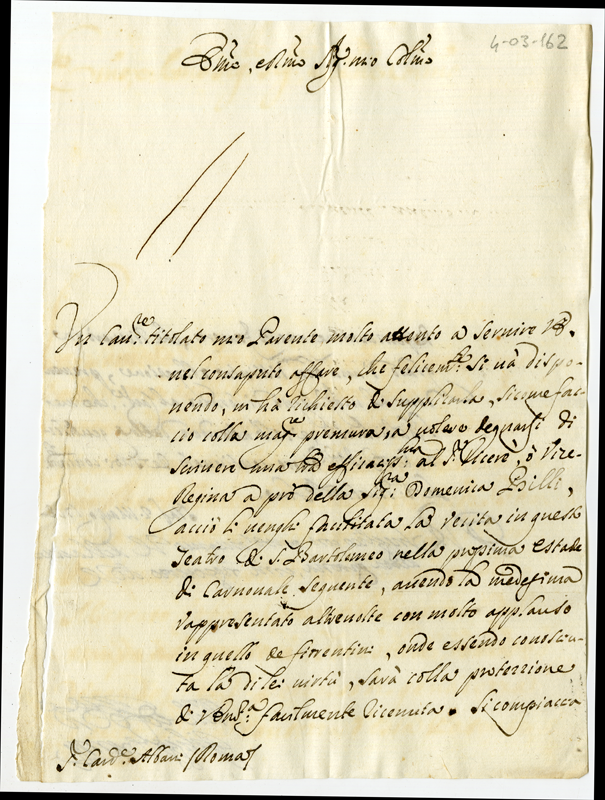 4-03-162
Em̃o, e Rmo Sig.r mio Colmo
Un Cau.re titolato mio Parente molto attento a seruire VE.
nel consaputo affare, che felicem.te si và dispo-
nendo, m'hà richiesto di supplicarla, sicome fac-
cio colla mag.r premura, a volere degnarsi di
scriuere una sua efficacis.ma al S.r Vicerè, ò Vice-
Regina a prò della Sig.ra Domenica Billi,
acciò li uenghi facilitata la recita in questo
Teatro di S. Bartolomeo nella prossima estade
di Carnouale seguente, auendo la medesima
rappresentato altreuolte con molto applauso
in quello de fiorentini, onde essendo conosciu-
ta la di lei virtù, sarà colla protezzione
di V. Em.a facilmente riceuuta. Si compiaccia
S.r Card.l Albani (Roma)